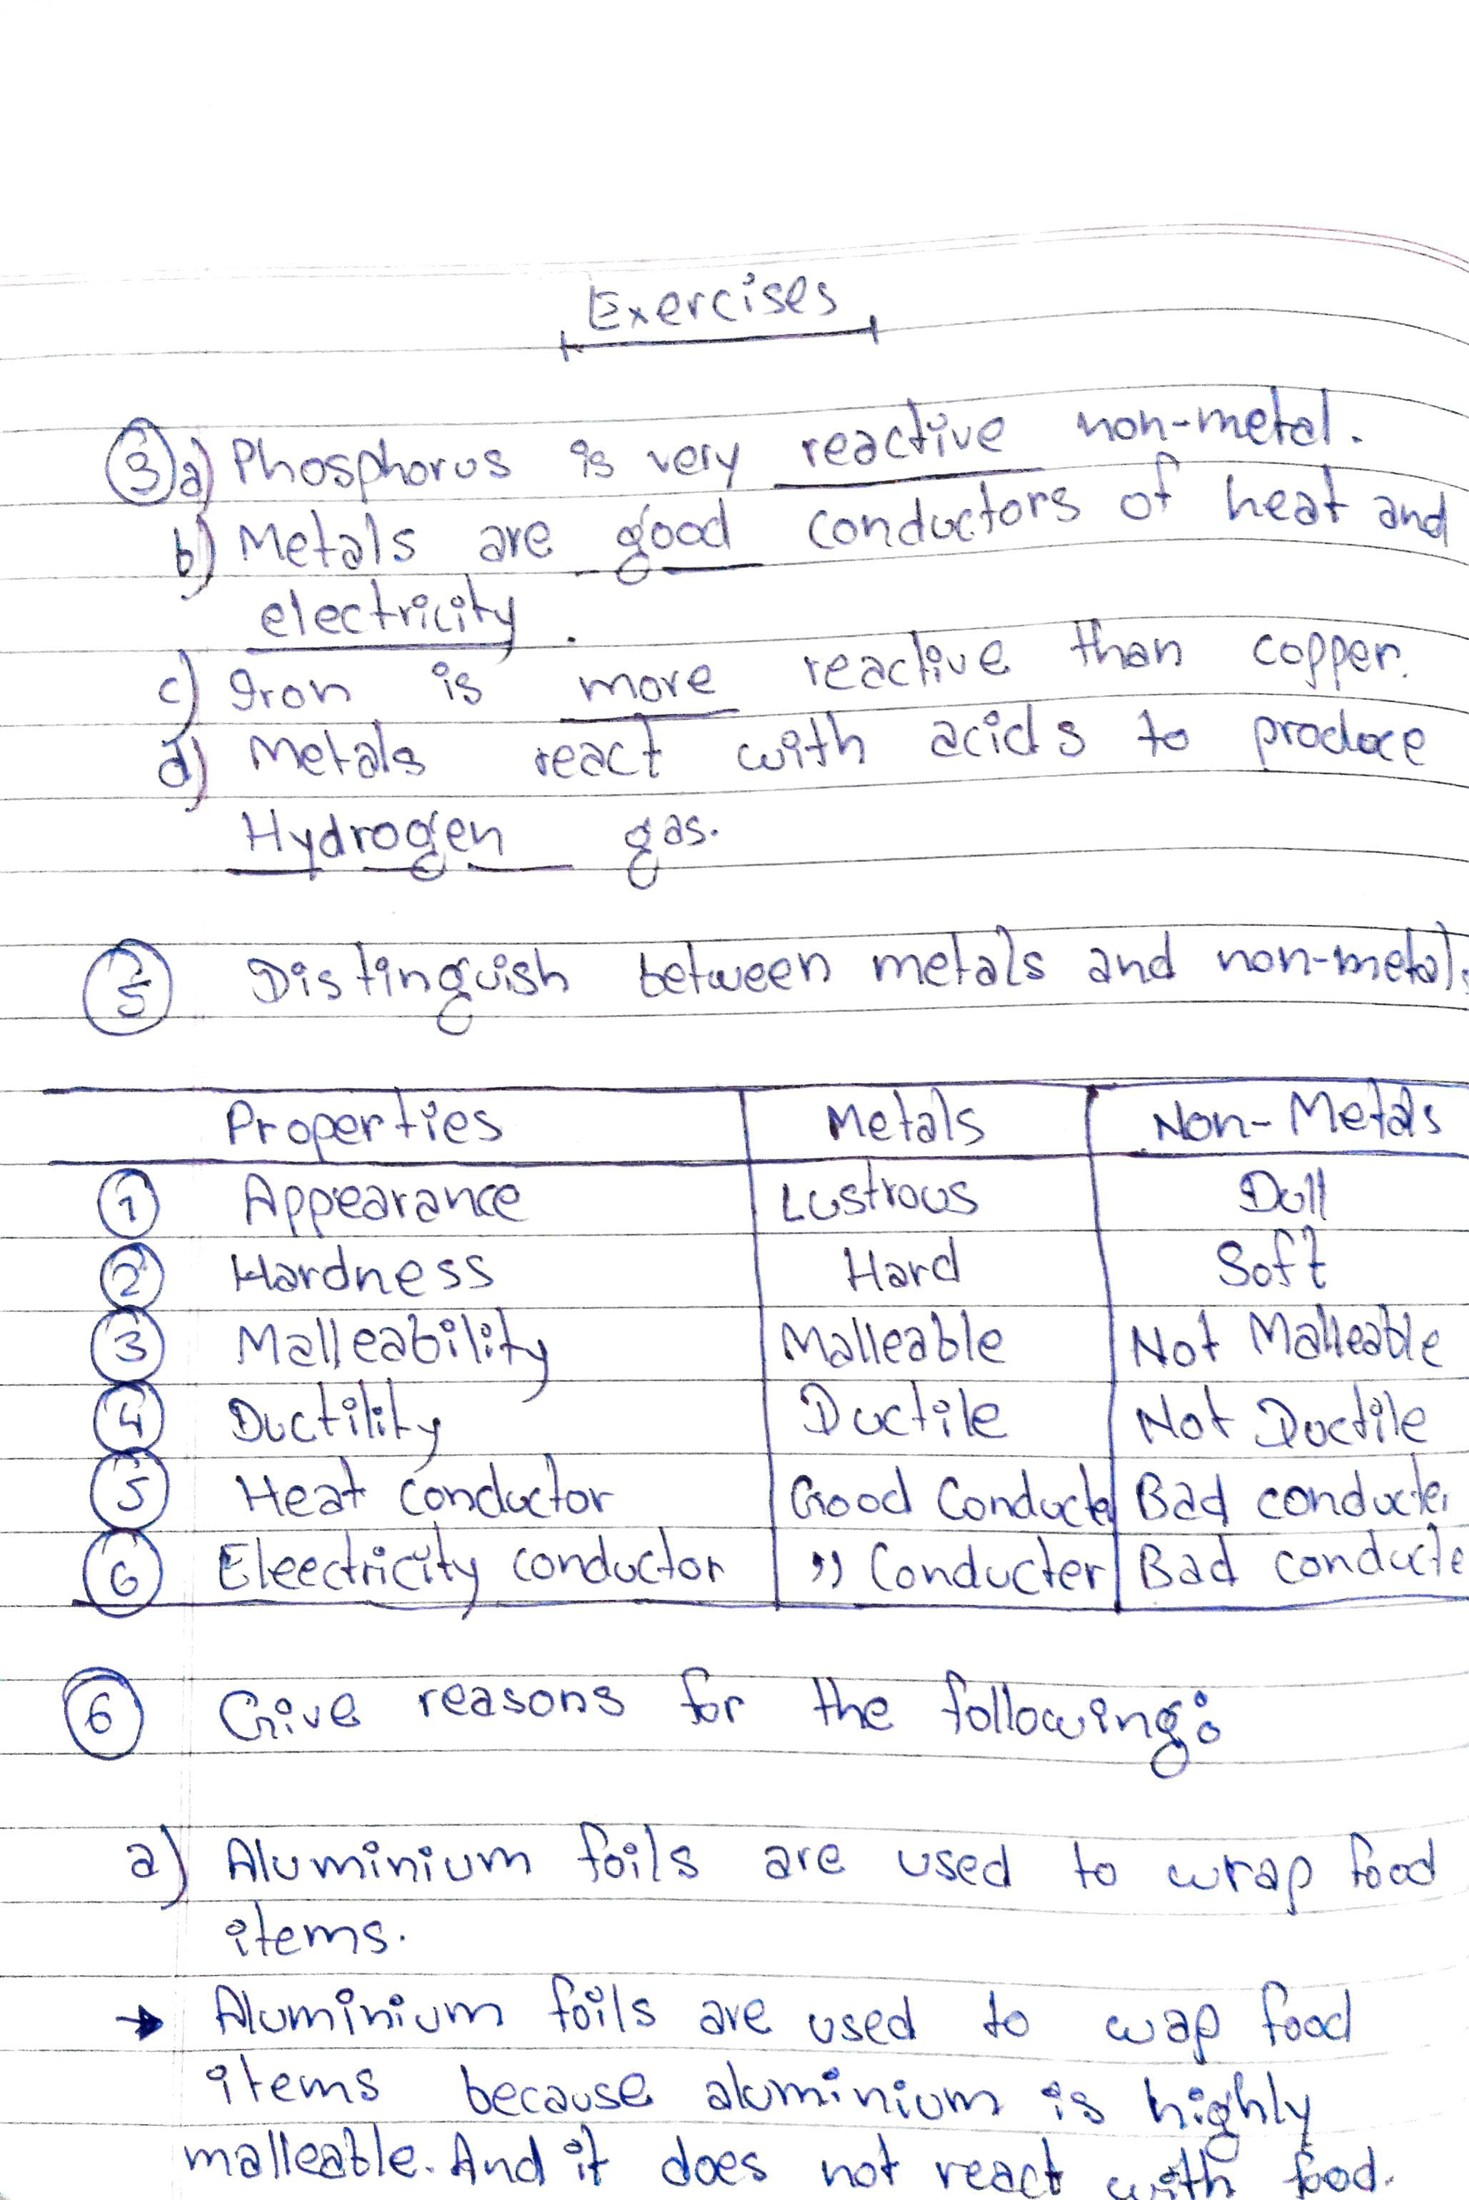 Exercises
③a) Phosphorus is very reactive non-metal.
b) Metals are good conductors of heat and
electricity.
c) Iron is more reactive than copper.
d) Metals react with acids to produce
Hydrogen gas.
⑤ Distinguish between metals and non-metals
Properties Metals Non-Metals
① Appearance Lustrous Dull
② Hardness Hard Soft
③ Malleability Malleable Not Malleable
④ Ductility Ductile Not Ductile
⑤ Heat Conductor Good Conducter Bad conducter
⑥ Eleectricity conductor " Conducter Bad conducte
⑥ Give reasons for the following:
a) Aluminium foils are used to wrap food
items.
→ Aluminium foils are used to wap food
items because aluminium is highly
malleable. And it does not react with food.